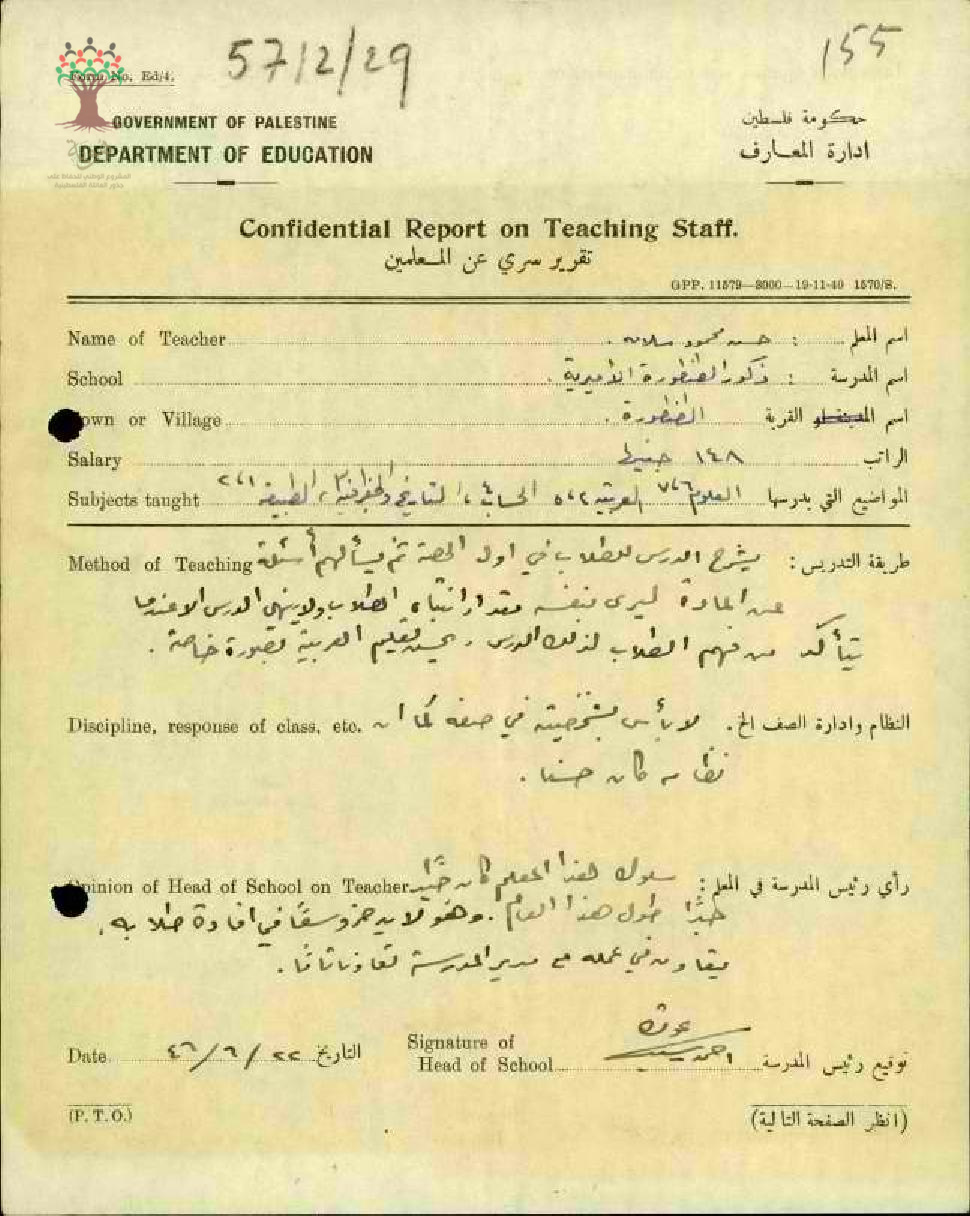 57/2/29
155
Form No. Ed/4.
GOVERNMENT OF PALESTINE
حكومة فلسطين
DEPARTMENT OF EDUCATION
ادارة المعارف
Confidential Report on Teaching Staff.
تقرير سري عن المعلمين
GPP. 11579—3000—19-11-40 1570/S.
Name of Teacher حسن محمود سلامه . اسم المعلم :
School ذكور الطنطورة الأميرية . اسم المدرسة :
Town or Village الطنطورة . اسم القرية
Salary ١٤٨ جنيها الراتب
Subjects taught العلوم العربية الحساب التاريخ والجغرافية الطبيعة المواضيع التي يدرسها
Method of Teaching يشرح الدرس للطلاب في اول الحصة ثم يسألهم أسئلة طريقة التدريس :
عن المادة ليرى بنفسه مقدار انتباه الطلاب ولا ينهي الدرس الا عندما
يتأكد من فهم الطلاب لذلك الدرس . يحسن تعليم العربية بصورة خاصة .
Discipline, response of class, etc. لا بأس بشخصيته في صفه كما ان النظام وادارة الصف الخ .
نظامه كان حسنا .
Opinion of Head of School on Teacher سلوك هذا المعلم كان جيّد رأي رئيس المدرسة في المعلم :
جدًّا طول هذا العام . وهو لا يدخر وسعًا في افادة طلابه .
يتعاون في عمله مع مدير المدرسة تعاونا تامًا .
Date ٢٢/٦/٤٦ التاريخ
Signature of Head of School توقيع رئيس المدرسة
(P. T. O.)
(انظر الصفحة التالية)